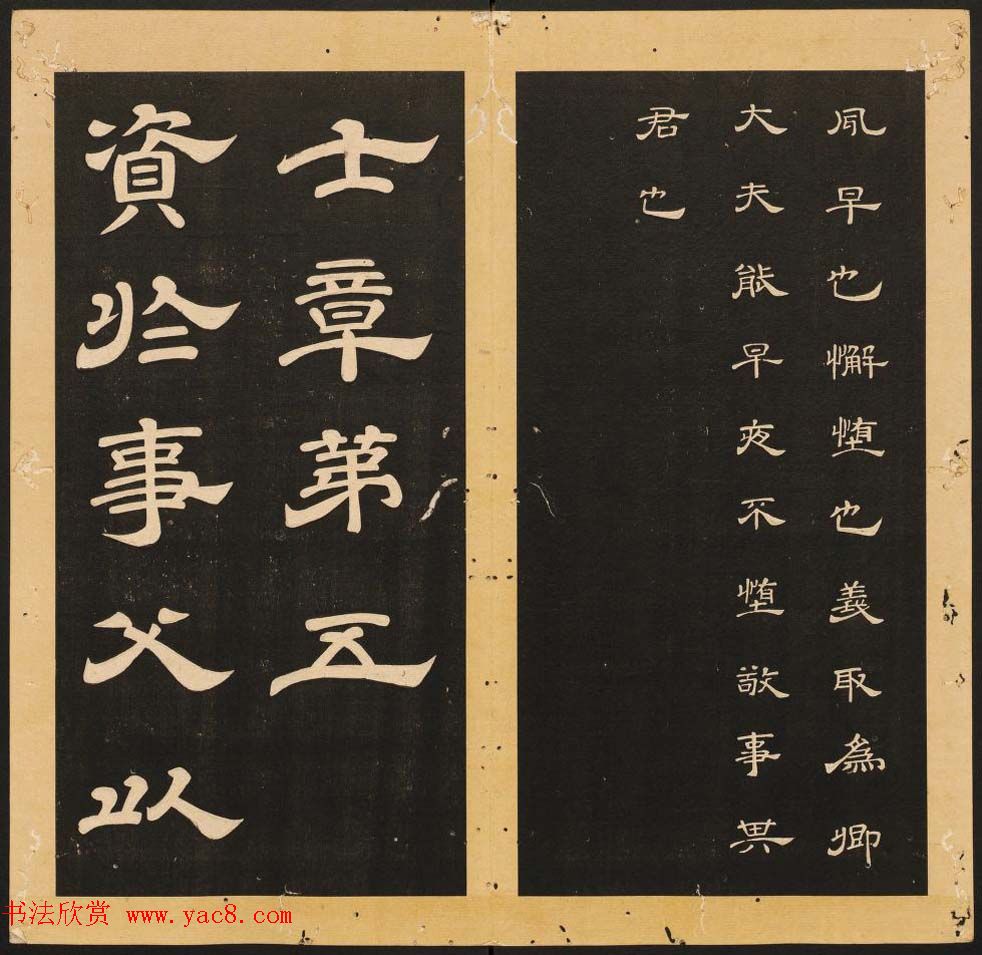 夙早也懈惰也義取為卿
大夫能早夜不惰敬事其
君也
士章第五
資於事父以
书法欣赏 www.yac8.com